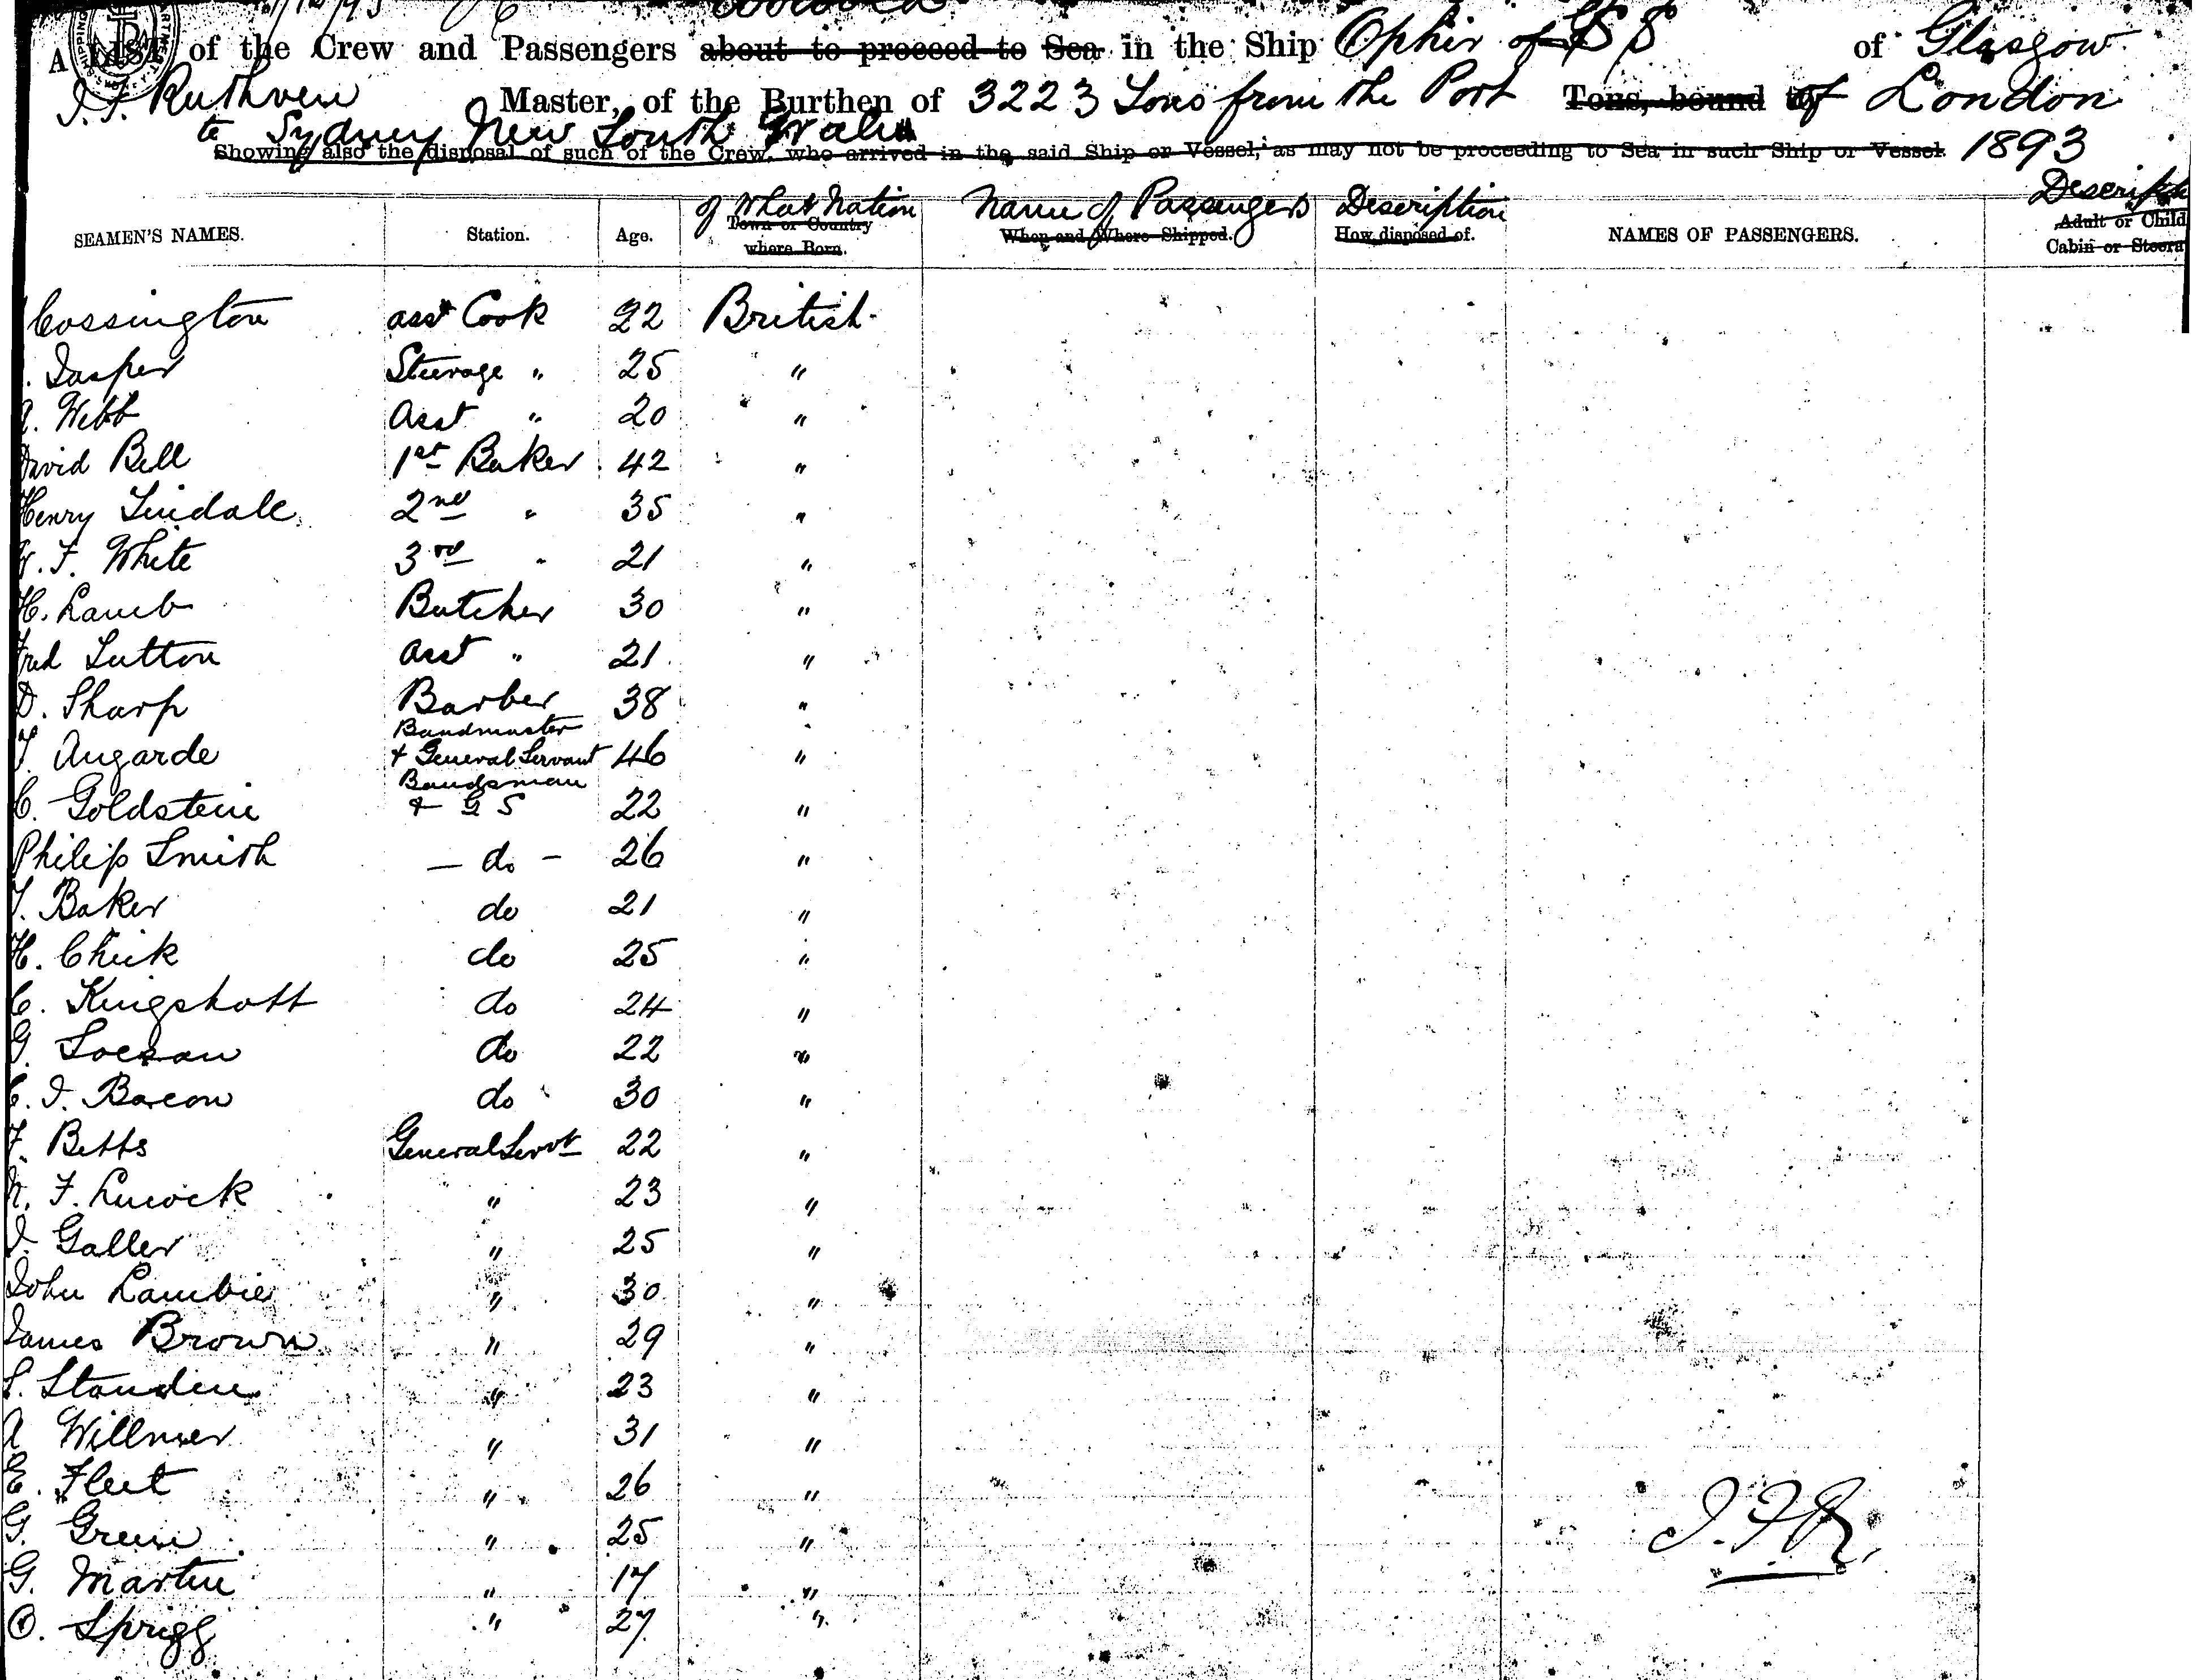 A LIST of the Crew and Passengers about to proceed to Sea in the Ship Ophir of SS of Glasgow
J. F. Ruthven Master, of the Burthen of 3223 Tons from the Port Tons, bound to of London
to Sydney New South Wales
Showing also the disposal of such of the Crew, who arrived in the said Ship or Vessel, as may not be proceeding to Sea in such Ship or Vessel. 1893
SEAMEN'S NAMES. Station. Age. of What Nation Town or Country where Born. Name of Passengers When and Where Shipped. Description How disposed of. NAMES OF PASSENGERS. Adult or Child Cabin or
Cossington asst Cook 22 British
Jasper Steerage " 25 "
A. Webb Asst " 20 "
David Bell 1st Baker 42 "
Henry Tindale 2nd " 35 "
F. White 3rd " 21 "
H. Lamb Butcher 30 "
Fred Sutton asst " 21 "
D. Sharp Barber 38 "
T Augarde Bandmaster + General Servant 46 "
C. Goldstein Bandsman + G S 22 "
Philip Smith — do — 26 "
Baker do 21 "
H. Chick do 25 "
C. Kingshott do 24 "
G. do 22 "
J. Bacon do 30 "
F. Betts General Servt 22 "
F. " 23 "
J. Galler " 25 "
John Lambie " 30 "
James Brown " 29 "
S. Standen " 23 "
A Willmer " 31 "
E. Fleet " 26 "
G. Green " 25 "
G. Martin " 17 "
O. Sprigg " 27 "
J.F.R.